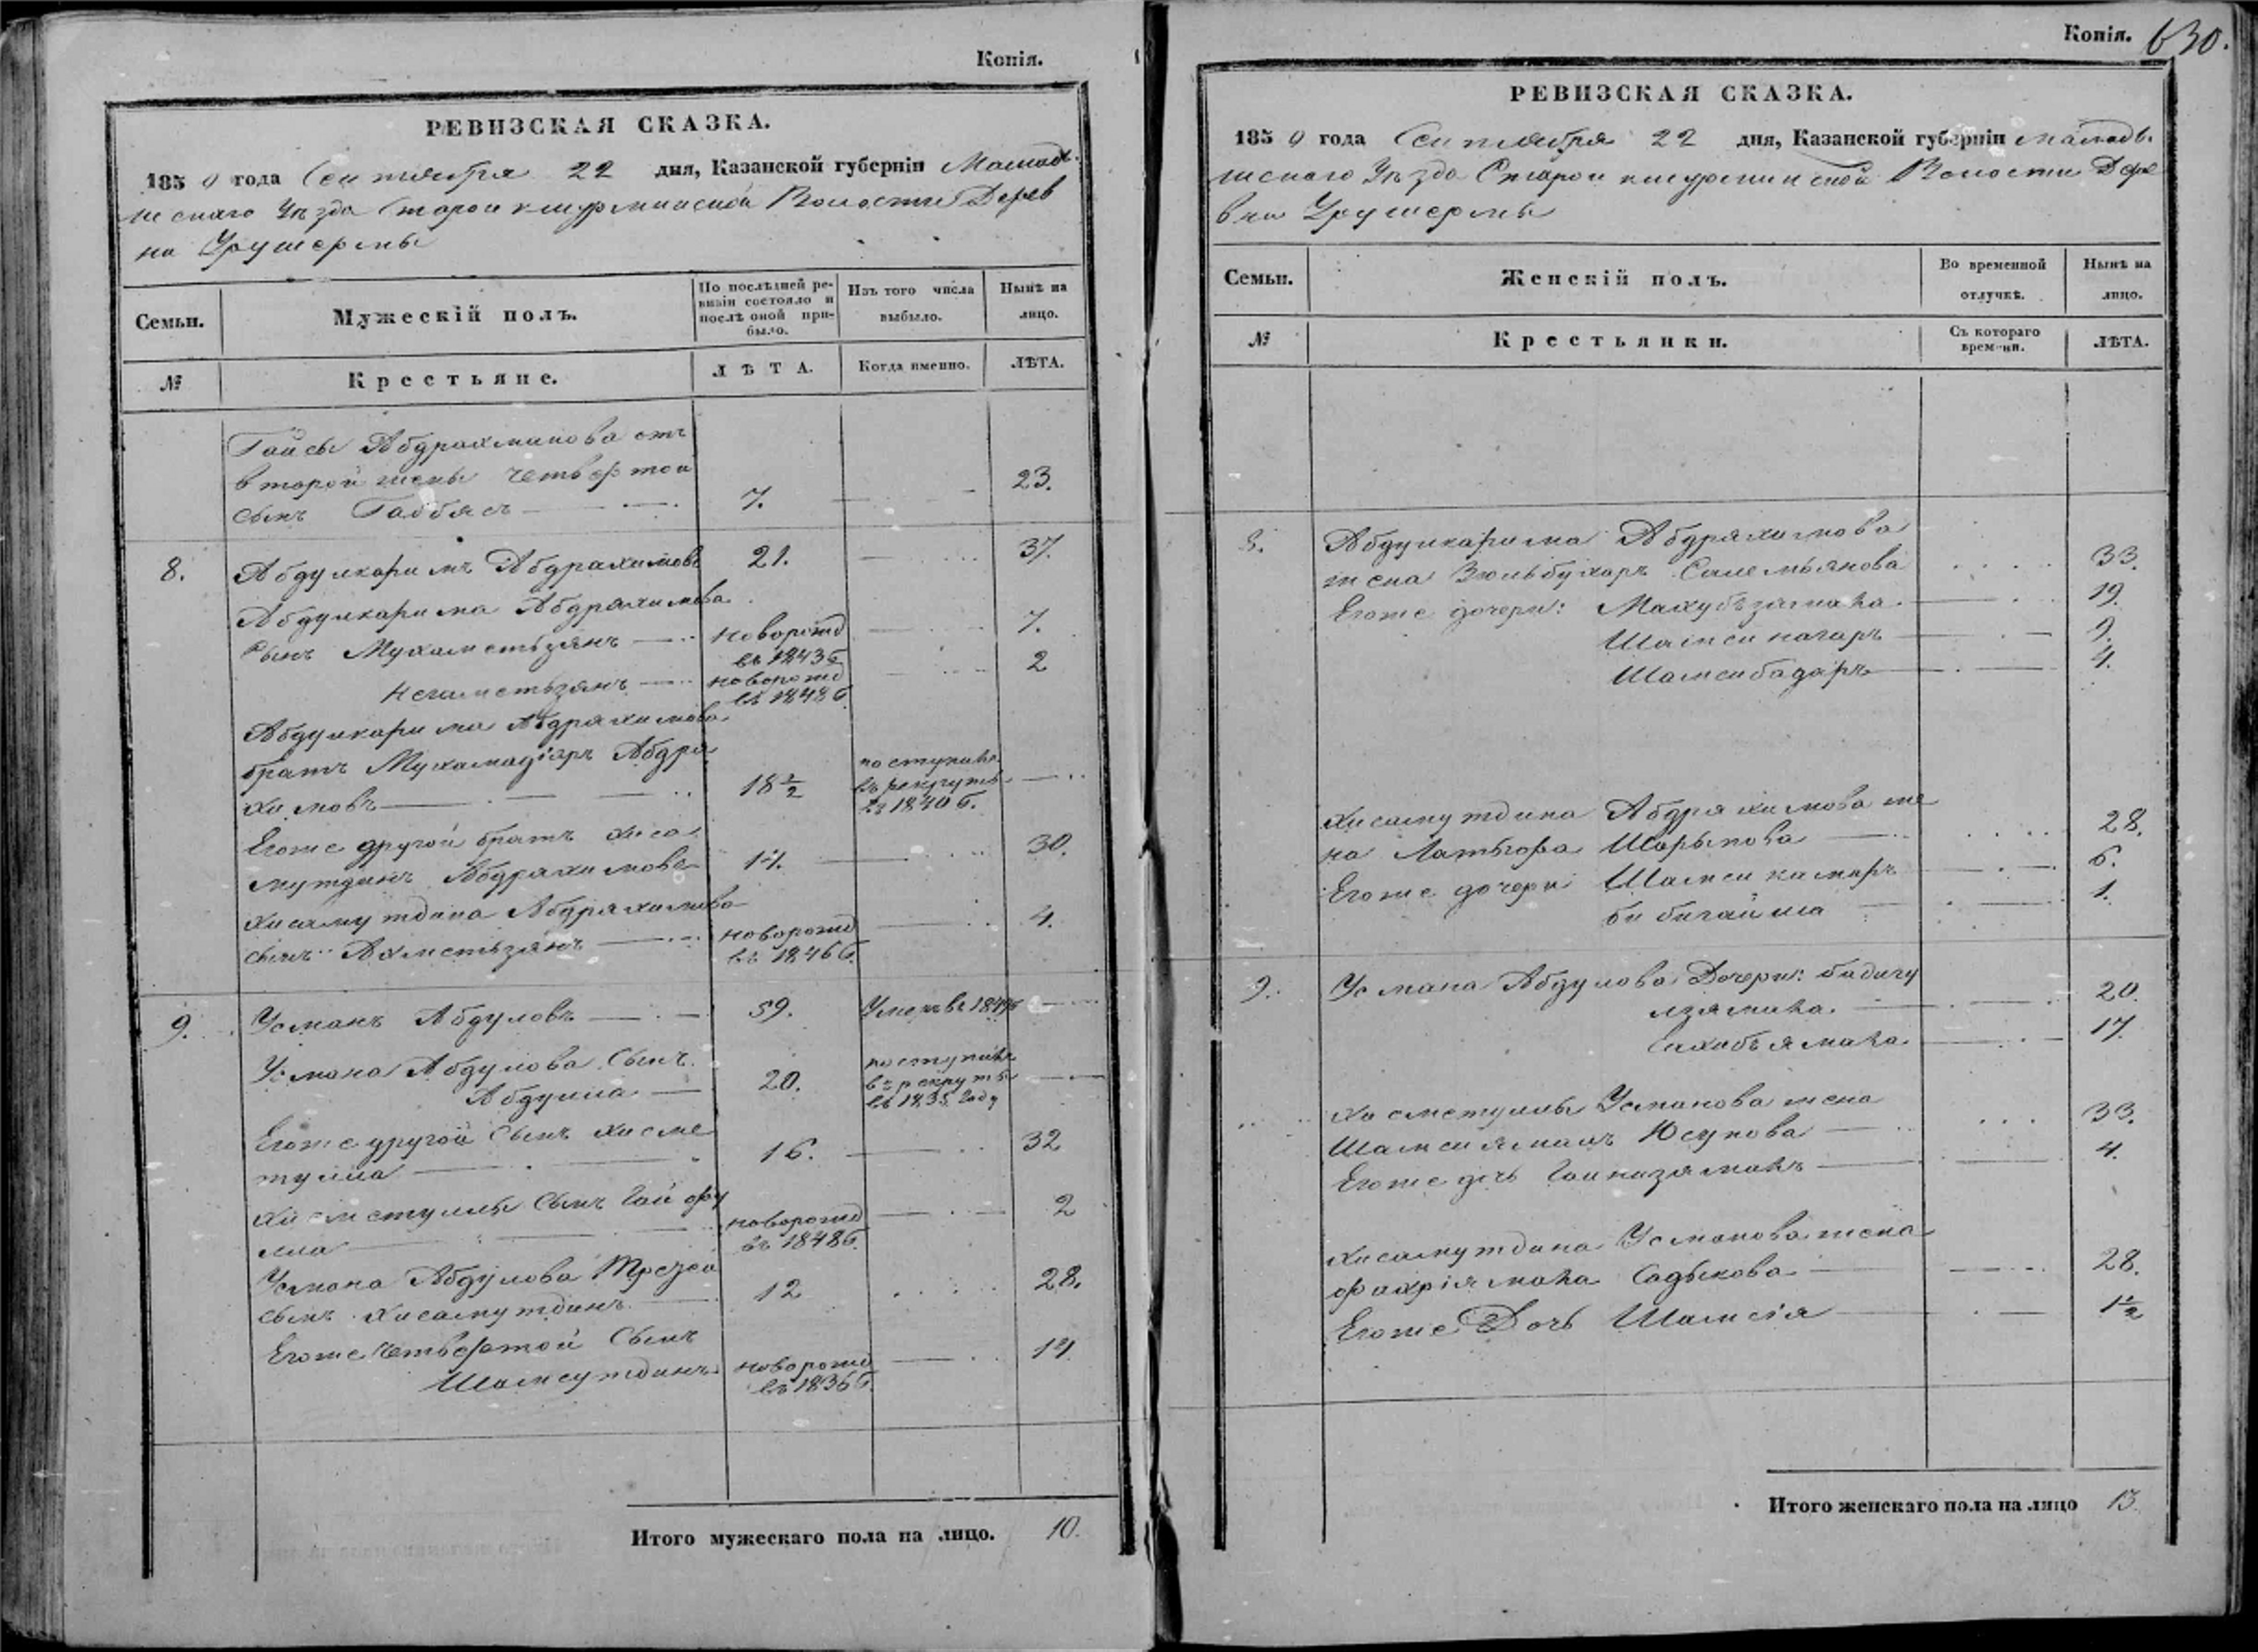 Копія.
РЕВИЗСКАЯ СКАЗКА.
1850 года Сентября 22 дня, Казанской губерніи Мамад
ысскаго Уѣзда Старокшурминской Волости Дерев
ни Урушермы
Семьи.
Мужескій полъ.
По послѣдней ре-
визіи состояло и
послѣ оной при-
было.
Изъ того числа
выбыло.
Нынѣ на
лицо.
№
Крестьяне.
ЛѢТА.
Когда именно.
ЛѢТА.
Гайсы Абдрахманова отъ
второй жены четвертой
сынъ Габбясъ 7. 23.
8. Абдулкаримъ Абдрахимовъ 21. 37.
Абдулкарима Абдряхимова
сынъ Мухаметьзянъ новорожд 7.
въ 1843 г.
Негаметьзянъ новорожд 2
въ 1848 г.
Абдулкарима Абдряхимова
братъ Мухамадіаръ Абдря
химовъ 18 1/2 поступилъ
въ рекруты
въ 1840 г.
Егоже другой братъ Хиса
мутдинъ Абдряхимовъ 14. 30.
Хисамутдина Абдряхимова
сынъ Ахметьзянъ новорожд 4.
въ 1846 г.
9. Усманъ Абдуловъ 59. Умеръ въ
Усмана Абдулова Сынъ
Абдулла 20. поступилъ
въ рекруты
въ 1835 году
Егоже другой Сынъ Хисме
тулла 16. 32
Хисметуллы Сынъ Гайфу
лла новорожд 2
въ 1848 г.
Усмана Абдулова Третей
сынъ Хисамутдинъ 12 28.
Егоже Четвертой Сынъ
Шамсутдинъ новорожд 14
въ 1836 г.
Итого мужескаго пола на лицо. 10.
Копія. 630.
РЕВИЗСКАЯ СКАЗКА.
1850 года Сентября 22 дня, Казанской губерніи Мамады
шскаго Уѣзда Старокшурминской Волости Дере
вни Урушермы
Семьи.
Женскій полъ.
Во временной
отлучкѣ.
Нынѣ на
лицо.
№
Крестьянки.
Съ котораго
времени.
ЛѢТА.
8. Абдулкарима Абдряхимова
жена Зюльбухаръ Салемьянова 33.
Егоже дочери: Махубъзямала 19.
Шамсинагаръ 9.
Шамсибадаръ 4.
Хисамутдина Абдряхимова же
на Латыфа Шарыпова 28.
Егоже дочери Шамсикамаръ 6.
Бибигайша 1.
9. Усмана Абдулова Дочери: Бадигу
лзямила. 20.
Сахибъямала 17.
Хисметуллы Усманова жена
Шамсиямалъ Юсупова 33.
Егоже дочь Гайназямалъ 4.
Хисамутдина Усманова жена
Фахріямала Садыкова 28.
Егоже Дочь Шамсія 1 1/2
Итого женскаго пола на лицо 13